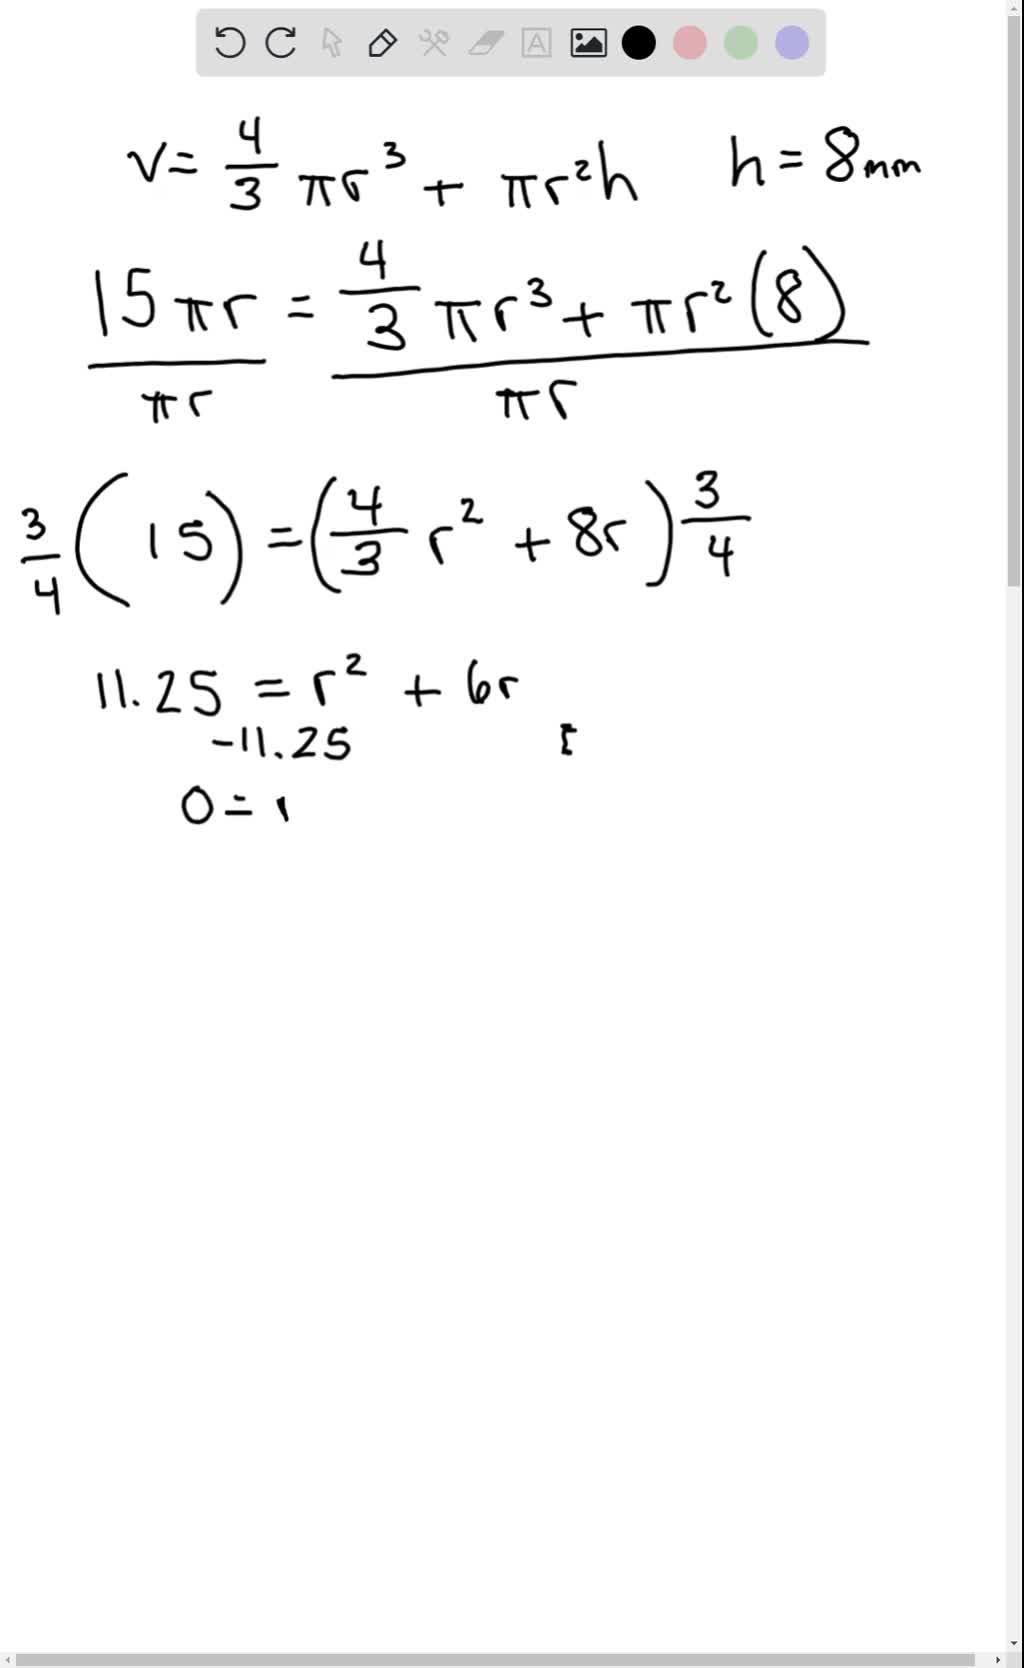 V = 4/3 πr³ + πr²h h = 8mm
15πr = 4/3 πr³ + πr²(8)
πr πr
3/4 (15) = (4/3 r² + 8r) 3/4
11.25 = r² + 6r
-11.25
0 =